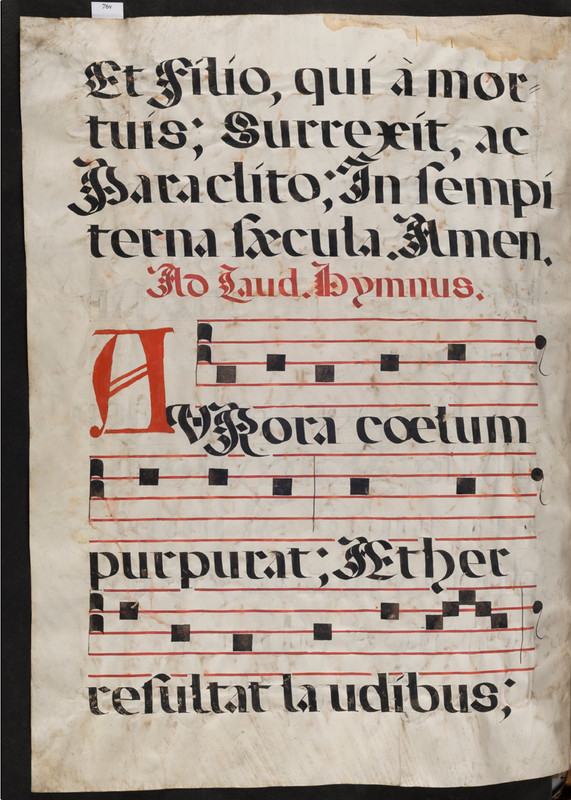 76v
Et Filio, qui à mor-
tuis; Surrexit, ac
Paraclito; In ſempi
terna ſæcula. Amen.
Ad Laud. Hymnus.
AURora cœlum
purpurat; Æther
reſultat laudibus;